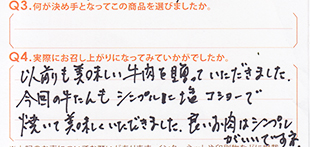 Q3.何が決め手となってこの商品を選びましたか。
Q4.実際にお召し上がりになってみていかがでしたか。
以前も美味しい牛肉を贈っていただきました。
今回の牛たんもシンプルに塩コショーで
焼いて美味しくいただきました。良いお肉はシンプル
がいいですネ